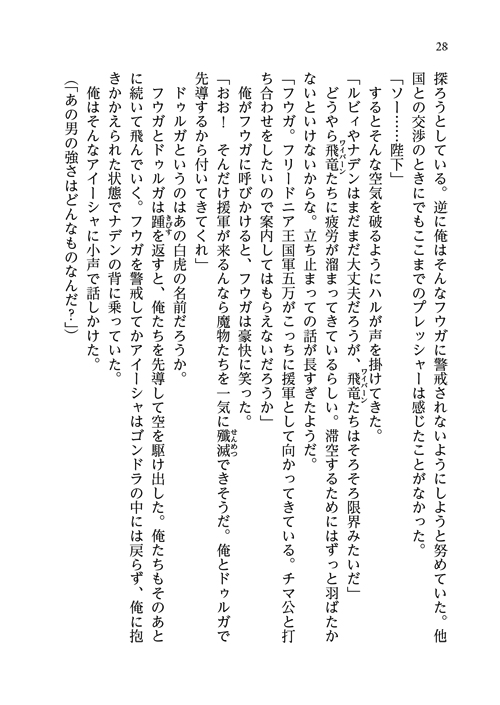 28
探ろうとしている。逆に俺はそんなフウガに警戒されないようにしようと努めていた。他
国との交渉のときにでもここまでのプレッシャーは感じたことがなかった。
「ソー……陛下」
　するとそんな空気を破るようにハルが声を掛けてきた。
「ルビィやナデンはまだまだ大丈夫だろうが、飛竜たちはそろそろ限界みたいだ」
ワイバーン
　どうやら飛竜たちに疲労が溜まってきているらしい。滞空するためにはずっと羽ばたか
ワイバーン
ないといけないからな。立ち止まっての話が長すぎたようだ。
「フウガ。フリードニア王国軍五万がこっちに援軍として向かってきている。チマ公と打
ち合わせをしたいので案内してはもらえないだろうか」
　俺がフウガに呼びかけると、フウガは豪快に笑った。
「おお！　そんだけ援軍が来るんなら魔物たちを一気に殲滅できそうだ。俺とドゥルガで
せんめつ
先導するから付いてきてくれ」
　ドゥルガというのはあの白虎の名前だろうか。
　フウガとドゥルガは踵を返すと、俺たちを先導して空を駆け出した。俺たちもそのあと
きびす
に続いて飛んでいく。フウガを警戒してかアイーシャはゴンドラの中には戻らず、俺に抱
きかかえられた状態でナデンの背に乗っていた。
　俺はそんなアイーシャに小声で話しかけた。
（「あの男の強さはどんなものなんだ？」）